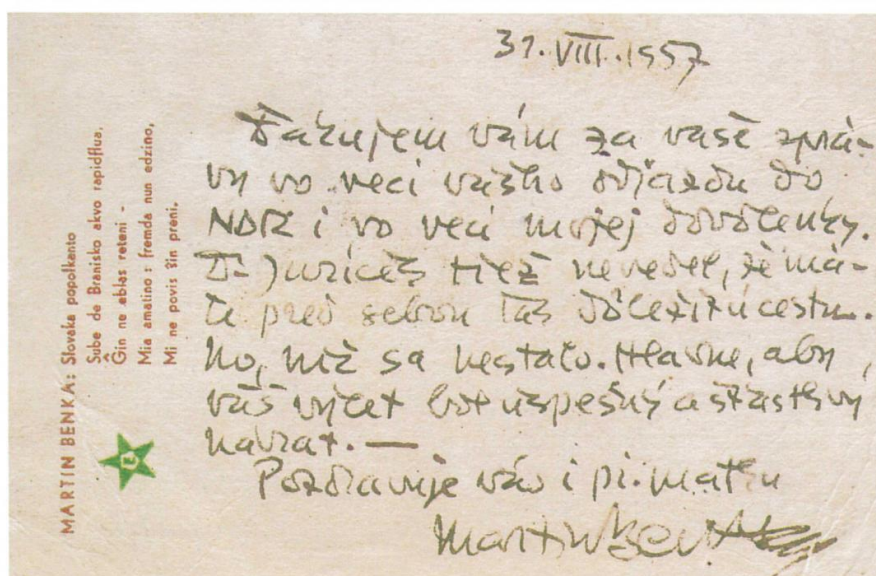 MARTIN BENKA: Slovaka popolkanto
Sube de Branisko akvo rapidflua,
Ĝin ne eblas reteni -
Mia amatino: fremda nun edzino,
Mi ne povis ŝin preni.
31.VIII.1957
Ďakujem vám za vaše zprá-
vy vo veci vášho odjazdu do
NDR i vo veci mojej dovolenky.
D- Juríček tiež nevedel, že má-
te pred sebou tak dôležitú cestu.
No, nič sa nestalo. Hlavne, aby
váš výlet bol úspešný a šťastlivý
návrat. —
Pozdravuje vás i p. matku
Martin Benka